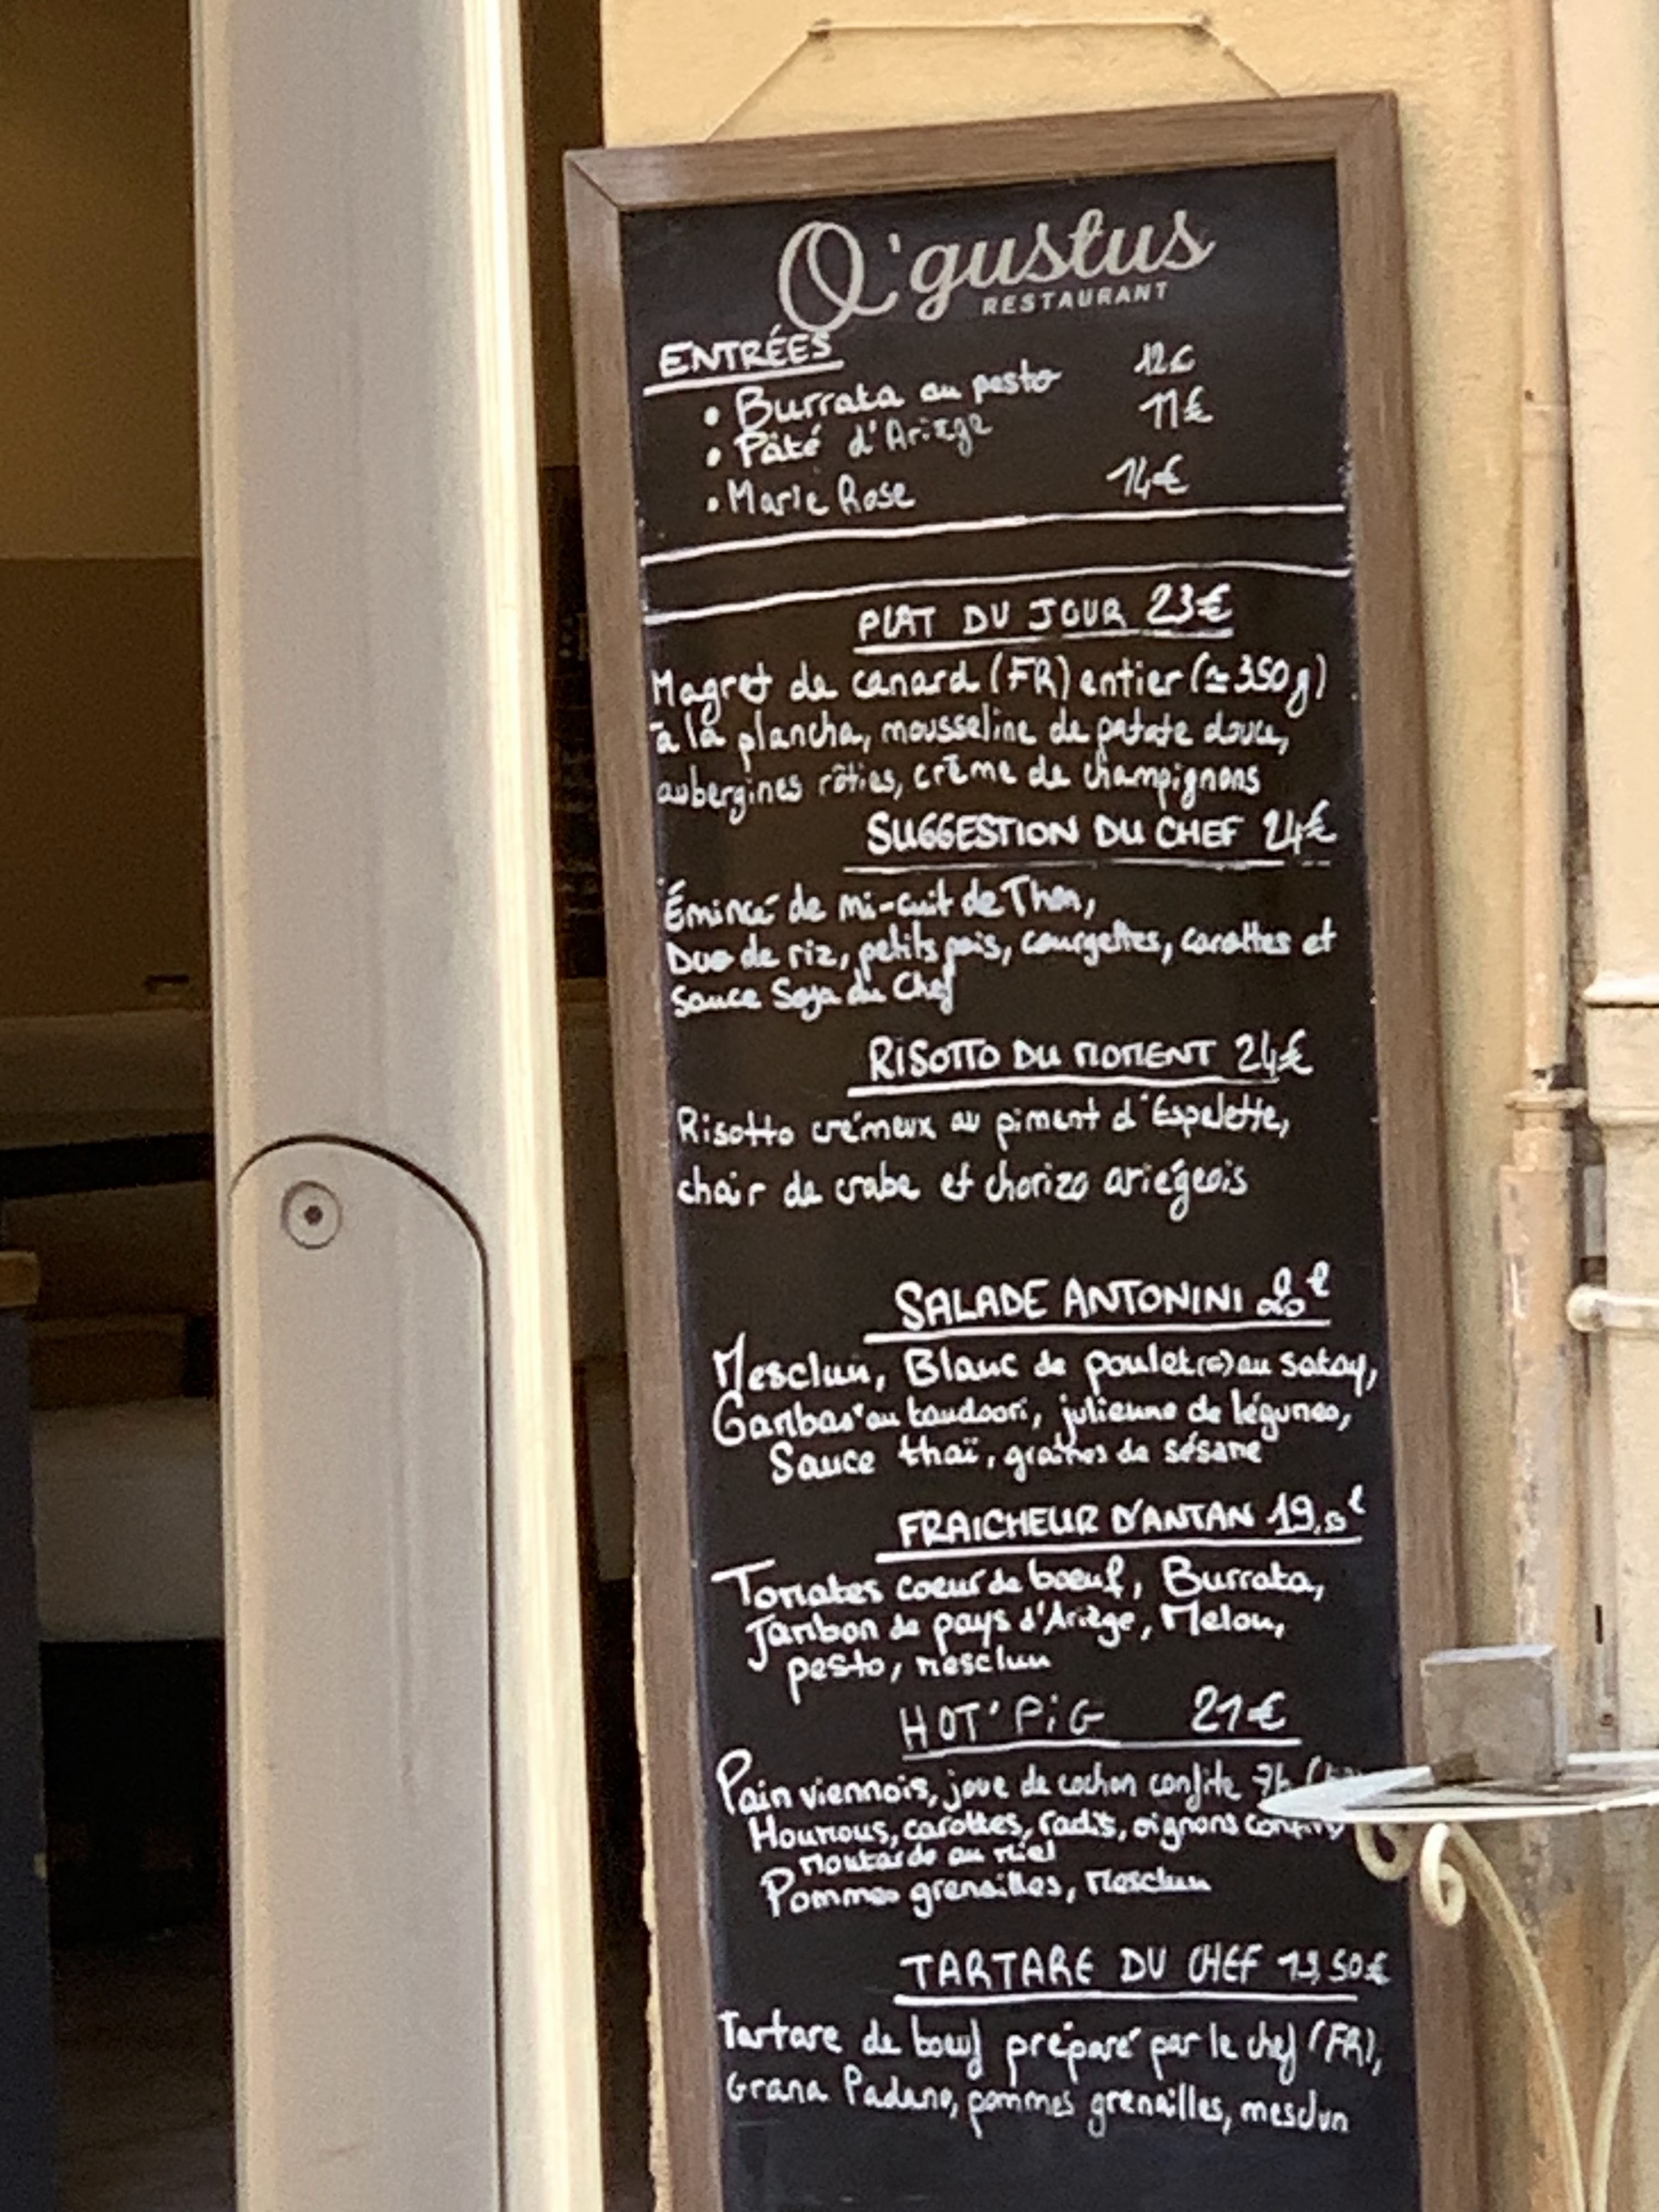 O'gustus
RESTAURANT
ENTRÉES
• Burrata au pesto 12€
• Pâté d'Ariège 11€
• Marie Rose 14€
PLAT DU JOUR 23€
Magret de canard (FR) entier (≃350g)
à la plancha, mousseline de patate douce,
aubergines rôties, crème de champignons
SUGGESTION DU CHEF 24€
Émincé de mi-cuit de Thon,
Duo de riz, petits pois, courgettes, carottes et
Sauce Soja du Chef
RISOTTO DU MOMENT 24€
Risotto crémeux au piment d'Espelette,
chair de crabe et chorizo ariégeois
SALADE ANTONINI 20€
Mesclun, Blanc de poulet au satay,
Gambas au tandoori, julienne de légumes,
Sauce thaï, graines de sésame
FRAICHEUR D'ANTAN 19,50€
Tomates coeur de boeuf, Burrata,
Jambon de pays d'Ariège, Melon,
pesto, mesclun
HOT'PiG 21€
Pain viennois, joue de cochon confite 7h
Houmous, carottes, radis, oignons confits
Moutarde au miel
Pommes grenailles, Mesclun
TARTARE DU CHEF 19,50€
Tartare de boeuf préparé par le chef (FR),
Grana Padano, pommes grenailles, mesclun